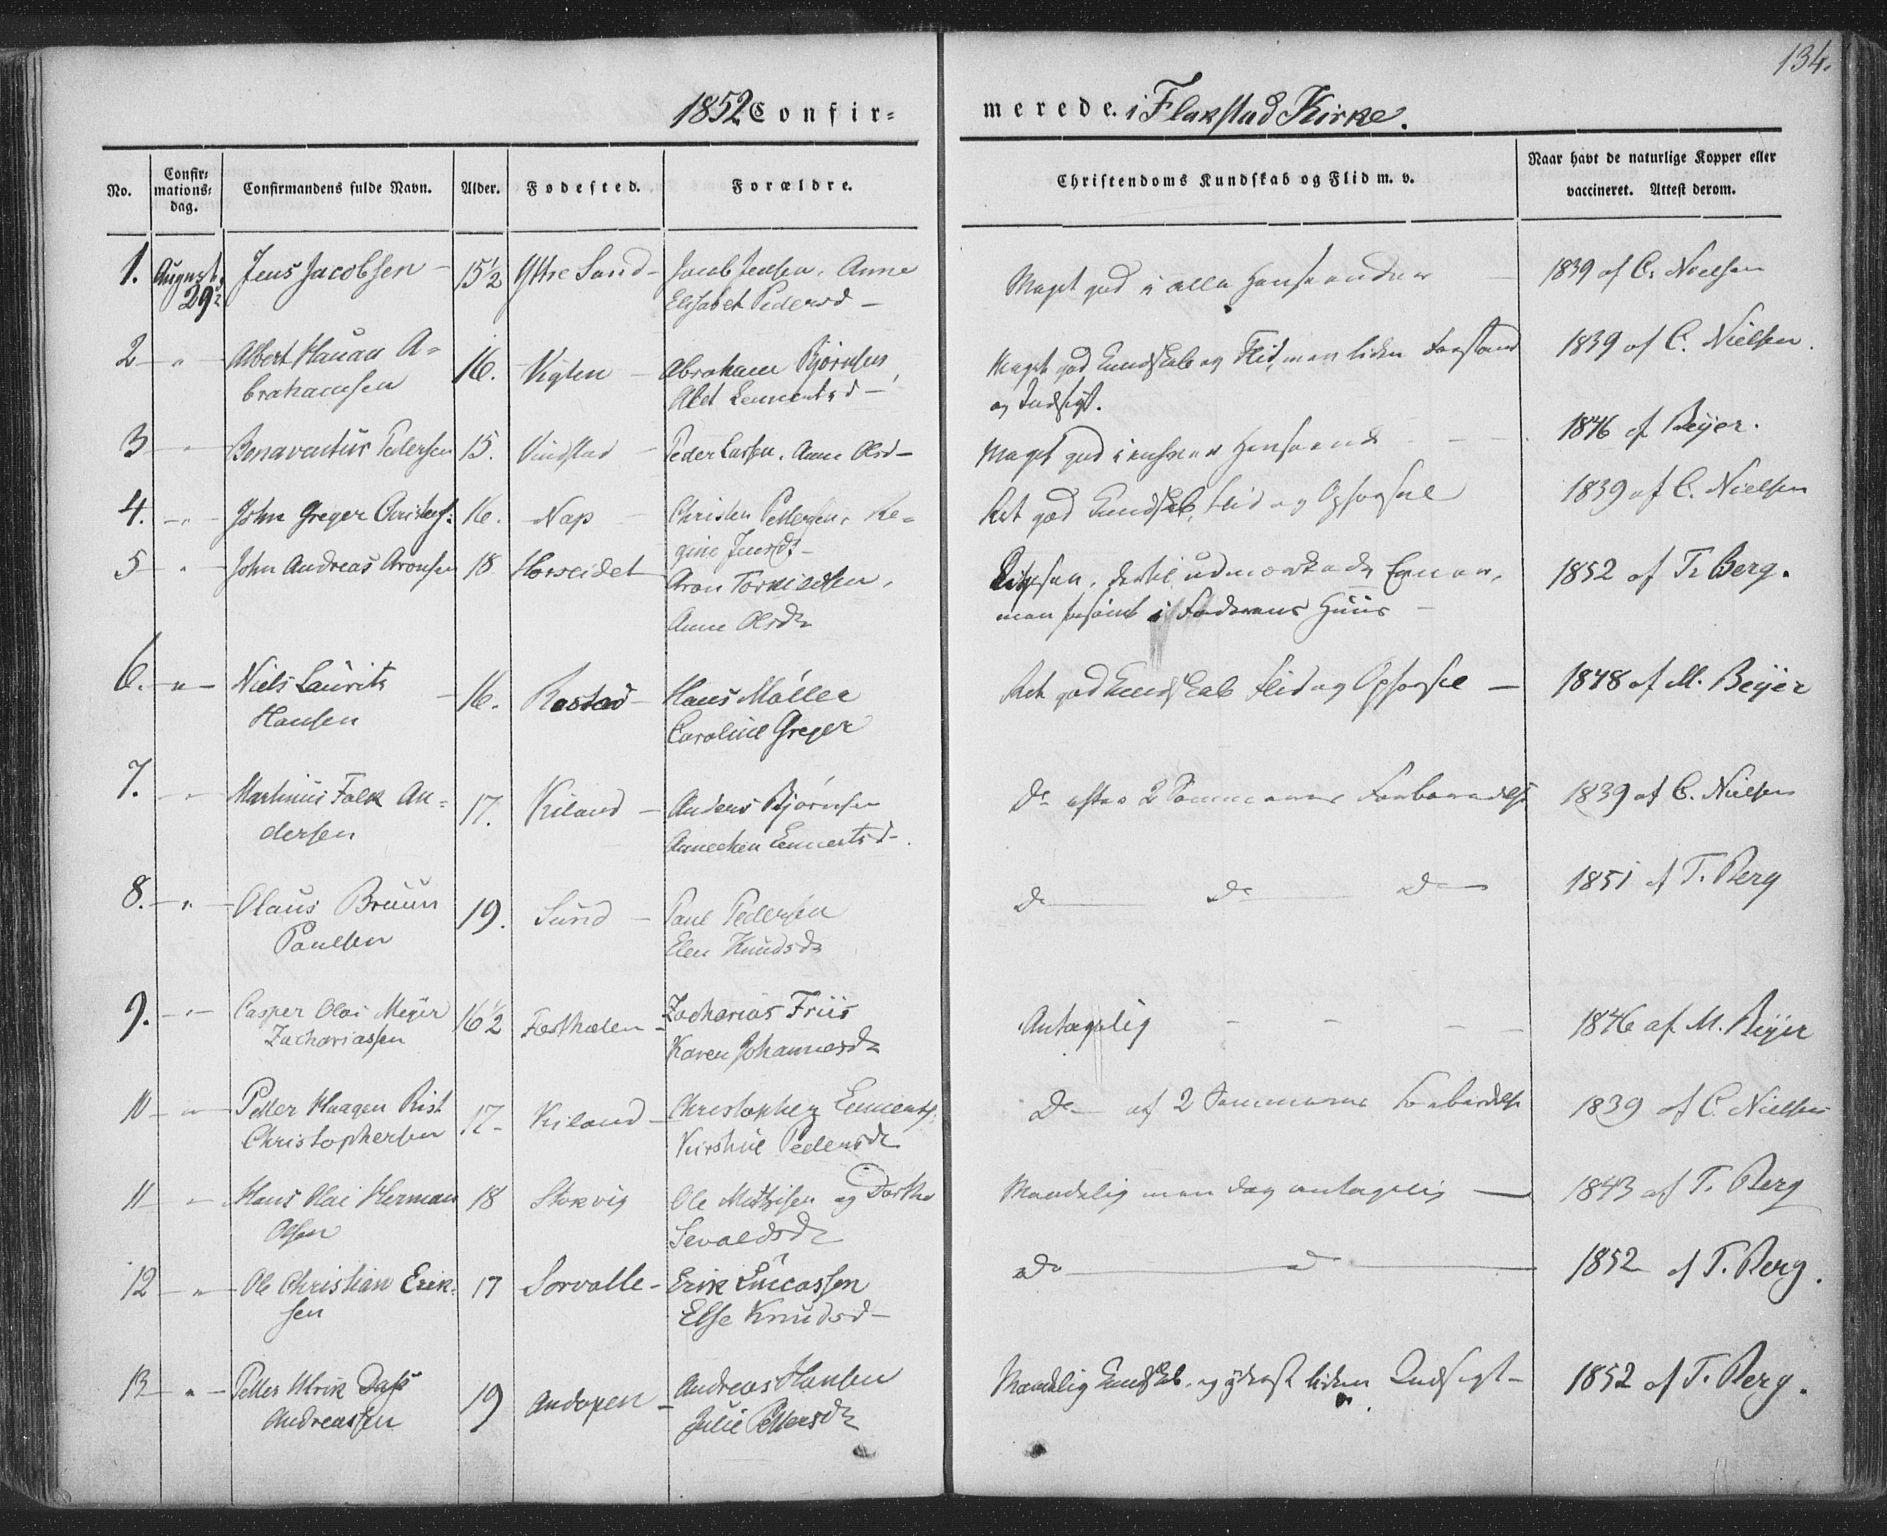 134.
1852 Confir= merede. i Flakstad Kirke.
No. Confir= mations= dag. Confirmandens fulde Navn. Alder. Fødested. Forældre. Christendoms Kundskab og Flid m. v. Naar havt de naturlige Kopper eller vaccineret. Attest derom.
1. August 29de Jens Jacobsen 15½ Yttre Sund Jacob Jensen, Anne Elisabet Pedersd Meget god i alle Henseender 1839 af C. Nielsen
2 " Albert Hanan Abrahamsen 16. Vigten Abraham Bjørnsen, Abel Lennertsd Meget god Kundskab og Flid, men liden Forstand og Indsigt. 1839 af C. Nielsen.
3 " Bonaventur Pedersen 15. Vindstad Peder Larsen, Anne Olsd Meget god i enhver Henseende 1846 af Beyer.
4. " John Greger Christens: 16. Nap Christen Pettersen, Regine Jensdr Ret god Kundskab, Flid og Opførsel 1839 af C. Nielsen
5 " John Andreas Aronsen 18 Horseidet Aron Torkildsen, Anne Olsdr men forsømt i Faderens Huus 1852 af T. Berg.
6. " Niels Laurits Hansen 16. Rostad Hans Møller Caroline Greger Ret god Kundskab Flid og Opførsel 1848 af M. Beyer
7. " Martinus Falk Andersen 17. Kiland Anders Bjørnsen Annechen Lennertsd. Do efter 2 Sommeres Forberedelse 1839 af C. Nielsen
8. " Olaus Bruun Paulsen 19. Sund Paul Pedersen Elen Knudsdr Do Do Do 1851 af T. Berg
9. " Casper Olai Meyer Zachariassen 16½ Zacharias Friis Karen Johannesdr Antagelig 1846 af M. Beyer
10 " Petter Haagen Rist Christophersen 17 Kiland Christopher Lennerts: Kirstine Pedersdr Do af 2 Sommeres Forberedelse 1839 af C. Nielsen
11 " Hans Olai Herman Olsen 18 Stokvig Ole Mathisen og Dorthe Sevaldsdr Maadelig men dog antagelig 1843 af T. Berg
12 " Ole Christian Eriksen 17 Sorvolle Erik Lucassen Else Knudsd Do Do 1852 af T. Berg.
13 " Petter Ulrik Dass Andreassen 19 Andopen Andreas Hansen Julie Pettersdr Maadelig Kundskab, og yderst liden Indsigt 1852 af T. Berg.